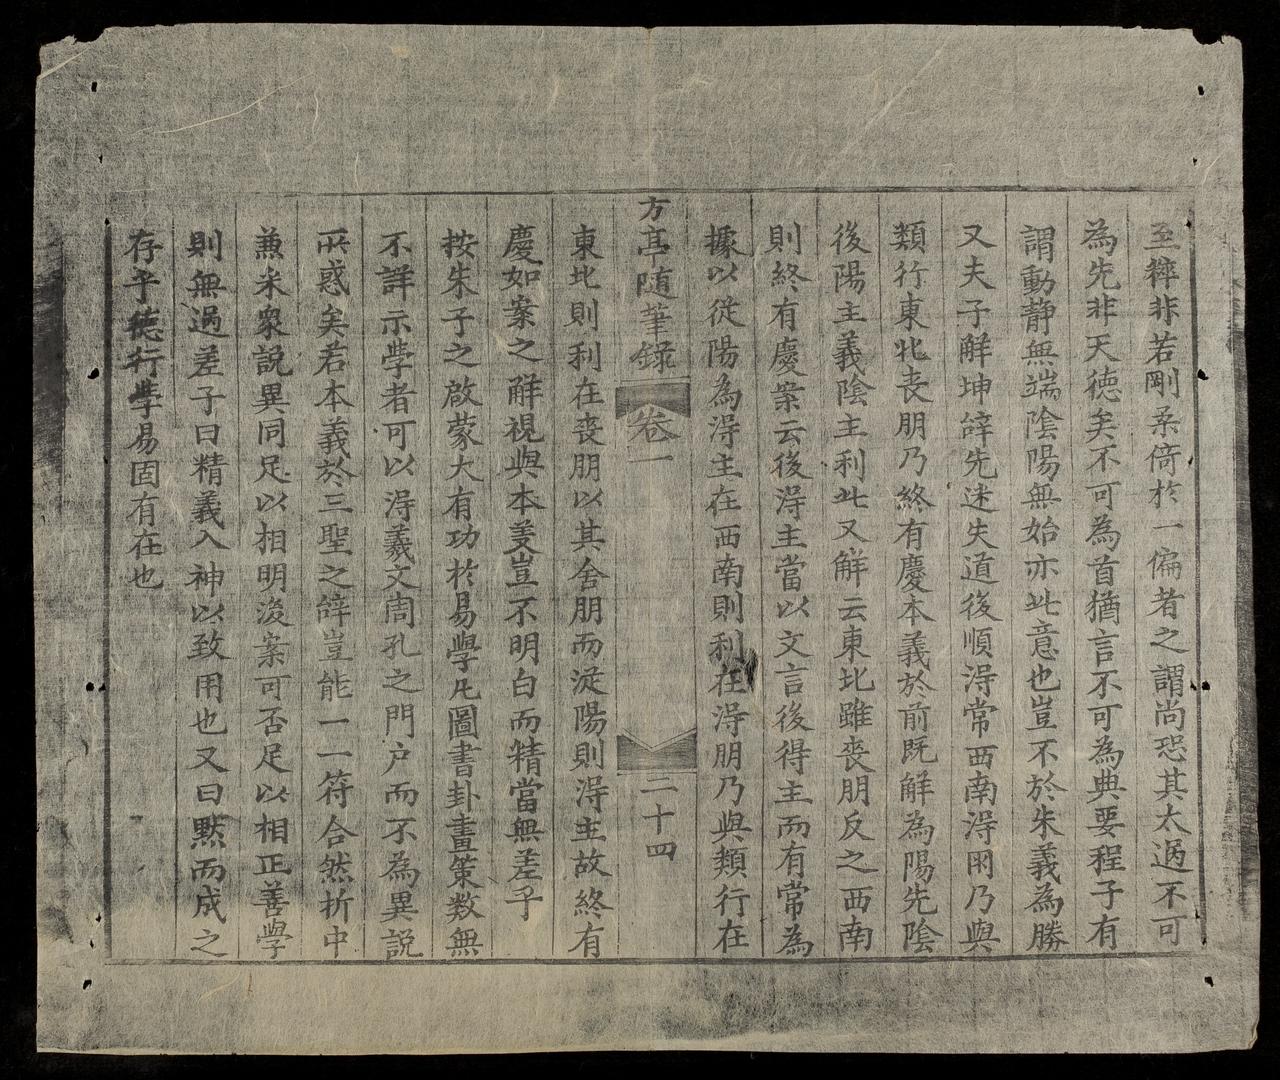 至粹非若剛柔倚於一偏者之謂尚恐其太過不可
為先非天德矣不可為首猶言不可為典要程子有
謂動静無端陰陽無始亦此意也豈不於朱義為勝
又夫子解坤辞先迷失道後順淂常西南淂朋乃與
類行東北喪朋乃終有慶本義於前既解為陽先陰
後陽主義陰主利此又解云東北雖喪朋反之西南
則終有慶案云後淂主當以文言後得主而有常為
據以從陽為淂主在西南則利在淂朋乃與類行在
方亭随筆録 卷一 二十四
東北則利在喪朋以其舍朋而從陽則淂主故終有
慶如案之解視與本義豈不明白而精當無差乎
按朱子之啟蒙大有功於易學凡圖書卦畫策数無
不詳示學者可以淂羲文周孔之門户而不為異説
所惑矣若本義於三聖之辞豈能一一符合然折中
兼釆衆説異同足以相明後案可否足以相正善學
則無過差子曰精義入神以致用也又曰黙而成之
存乎德行學易固有在也